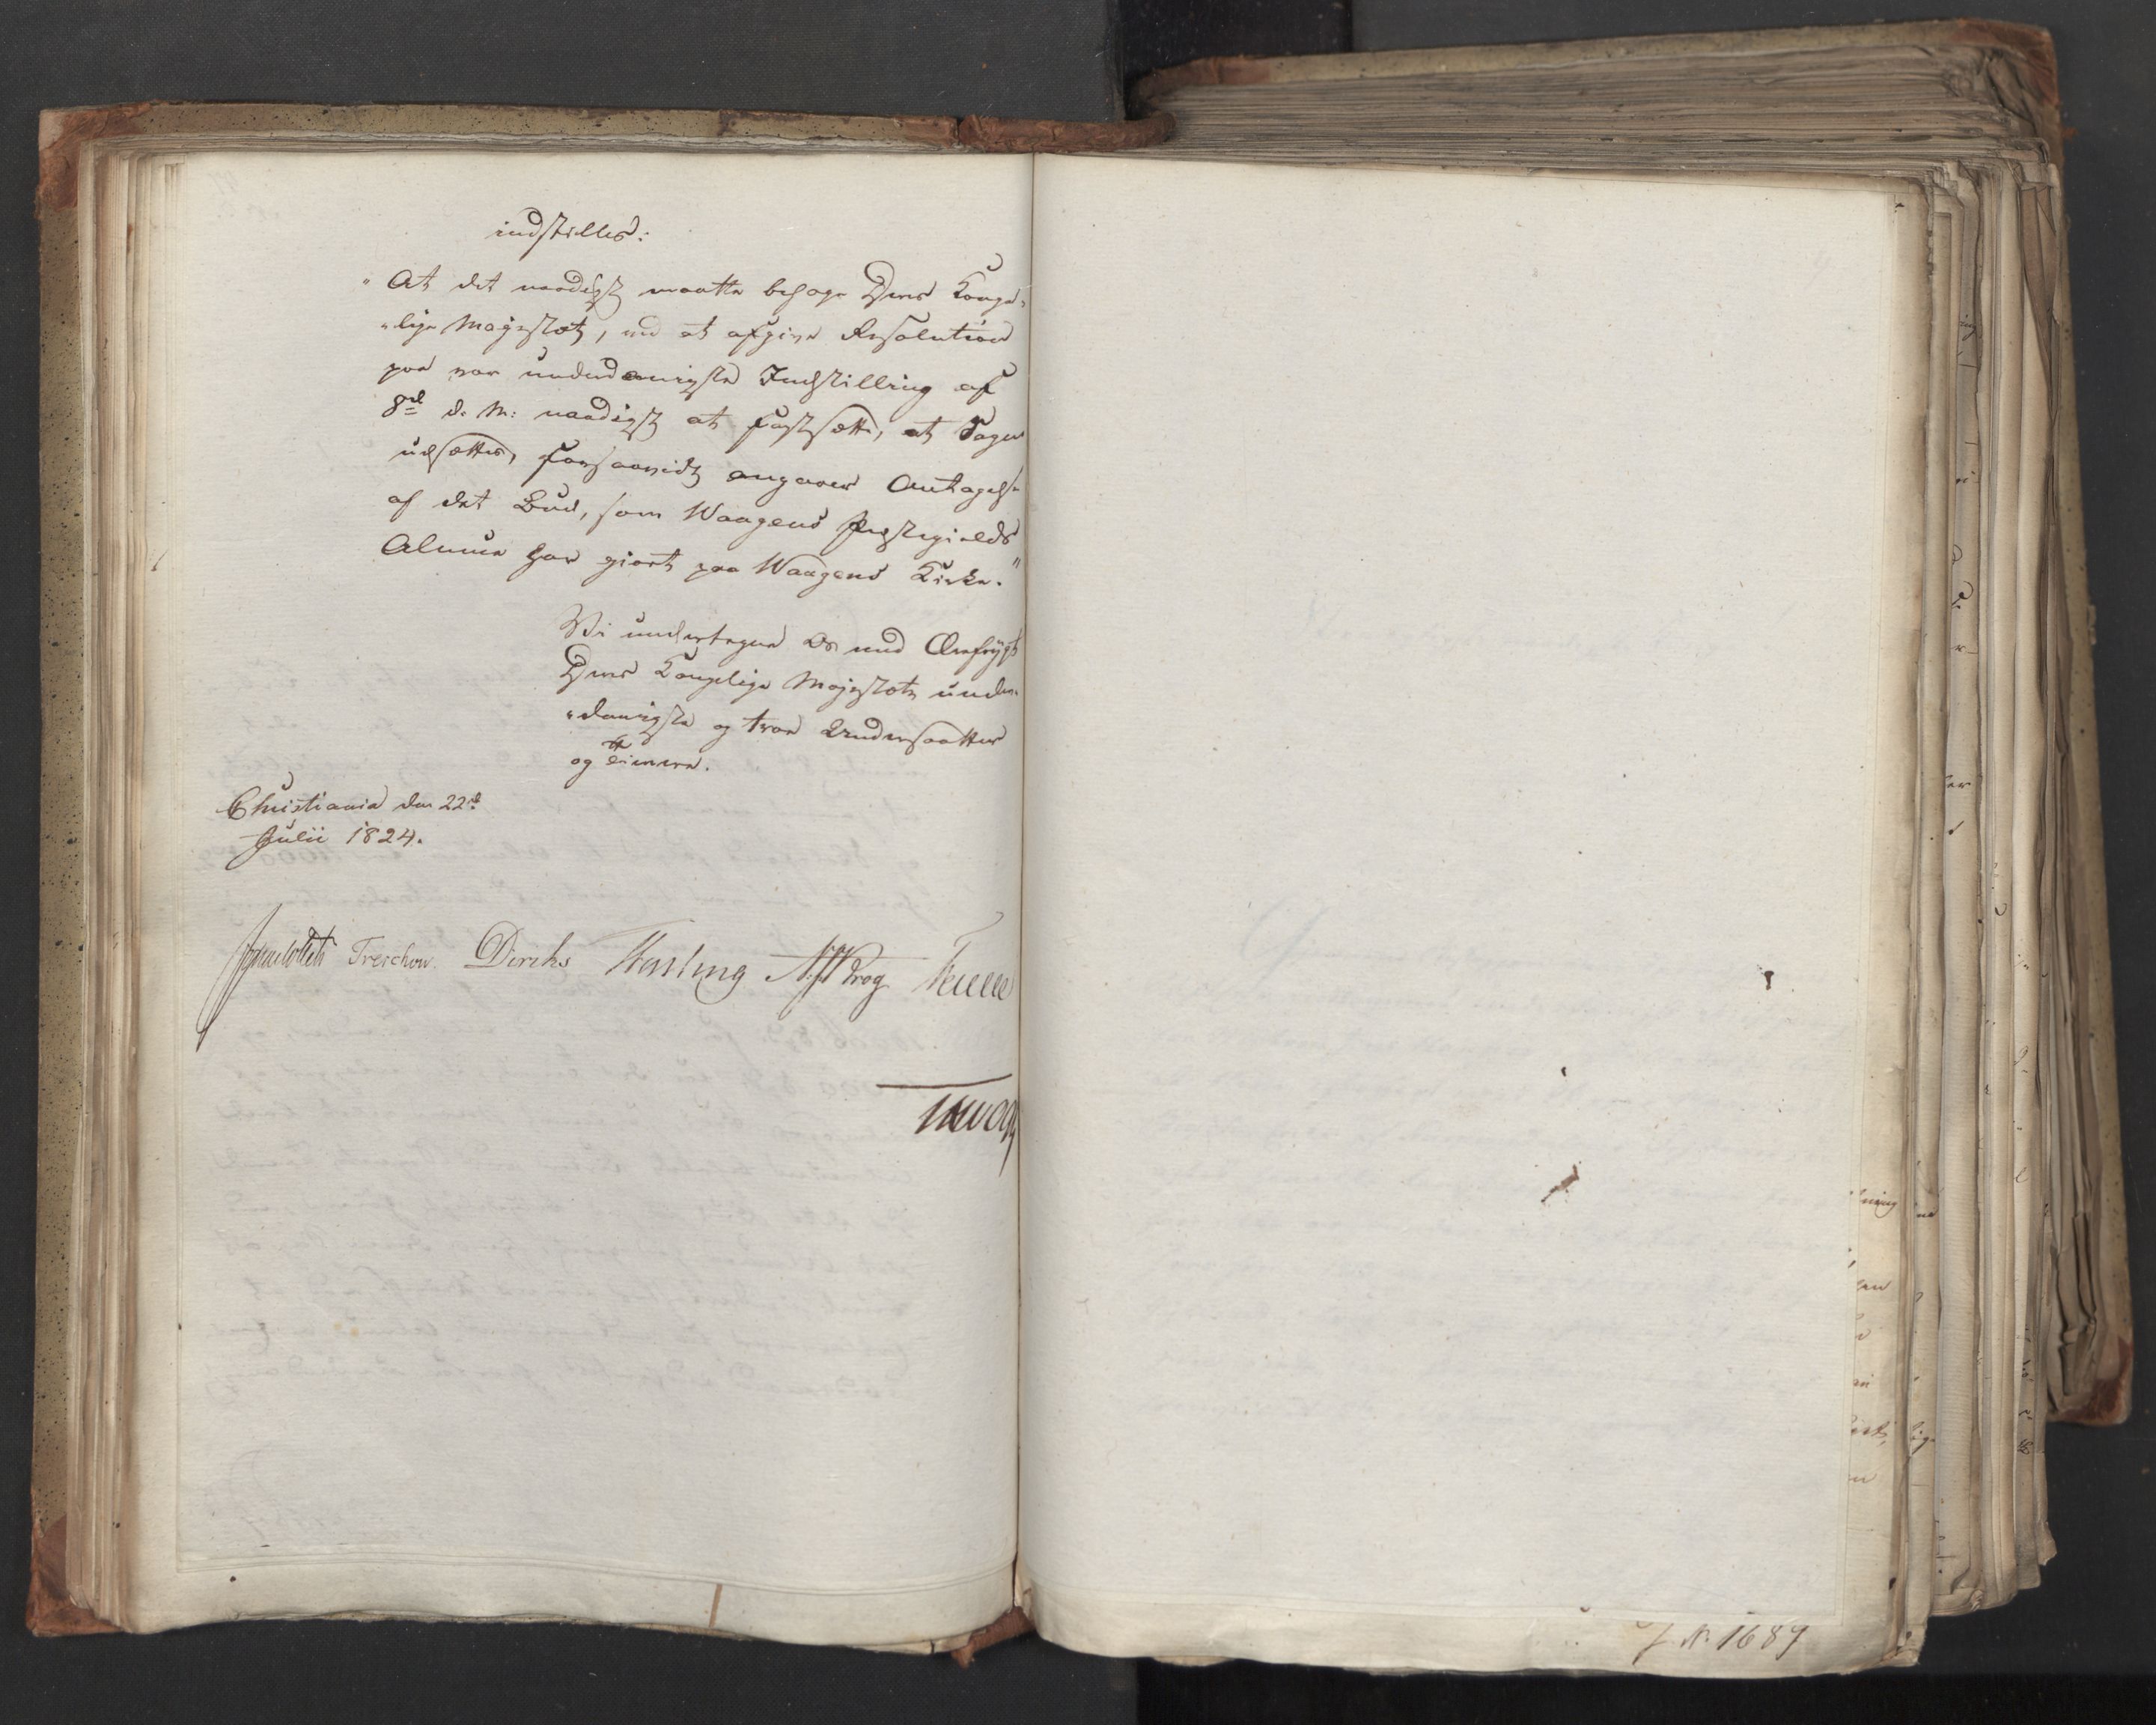 indstilles:
"At det naadigst maatte behage Deres Konge-
"lige Majestæt, ved at afgive Resolution
paa vor underdanigste Indstilling af
8de d. M. naadigst at fastsætte, at Sagen
udsættes, forsaavidt angaaer Antagelse
af det Bud, som Waagens Præstegields
Almue har giort paa Waagens Kirke."
Vi undertegne os med Ærefrygt
Deres Kongelige Majestæts under-
"danigste og troe Undersaatter
og Tienere.
Christiania den 22de
Julii 1824.
Treschow. Diriks Fasting Krog
J. No 1687